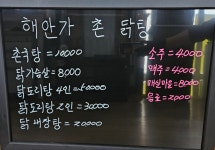 해안가 촌 닭탕
촌닭탕 = 10000
닭가슴살 = 8,000
닭도리탕 4인 = 50000
닭도리탕 2인 = 30000
닭 새장탕 = 20000
소주 = 4,000
맥주 = 4,000
매실마을 = 8000
음료 = 2000